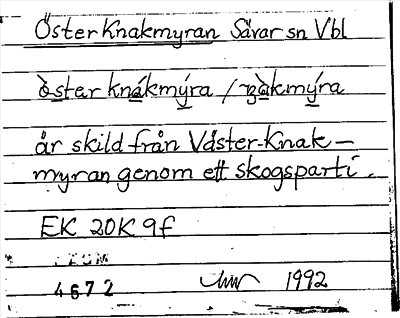 Öster Knakmyran Sävar sn Vbl
ö̀ster knákmýra / 
är skild från Väster-Knak-
myran genom ett skogsparti.
EK 20K 9f
4672 1992